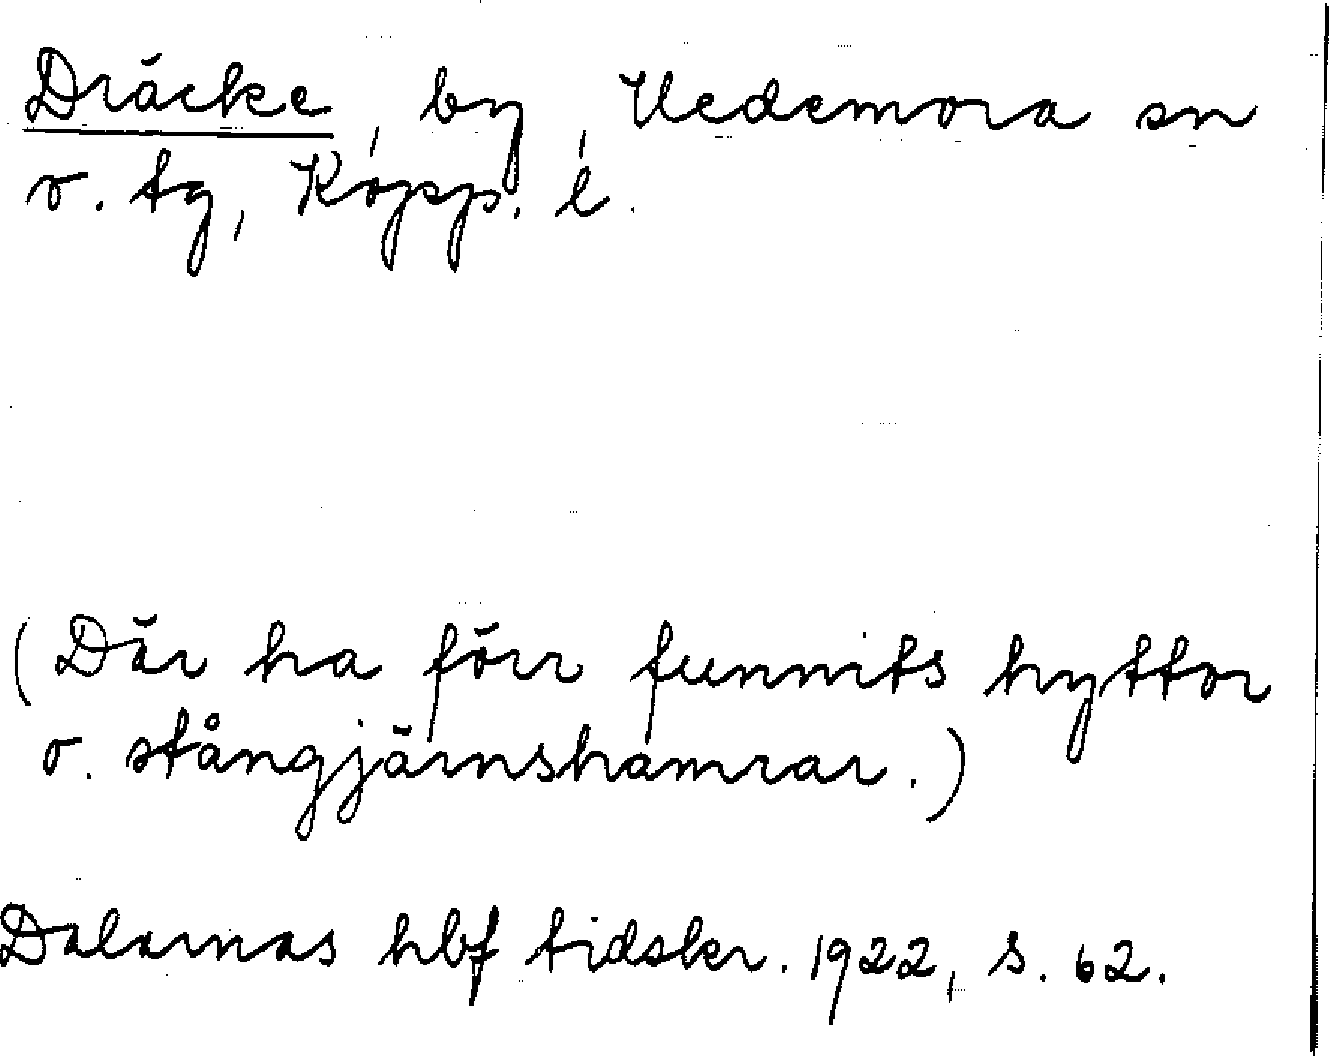 Dräcke, by, Vedemora sn
o. tg, Kopp. l.
(Där ha förr funnits hyttor
o. stångjärnshamrar.)
Dalarnas hbf tidskr. 1922, s. 62.